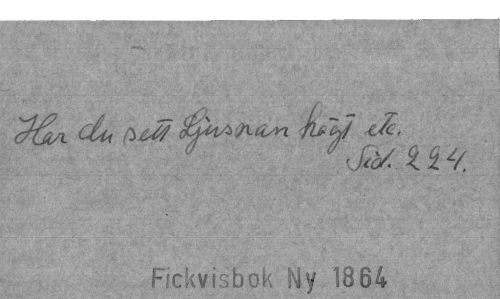 Har du sett Ljusnan högt etc.
Sid. 224.
Fickvisbok Ny 1864